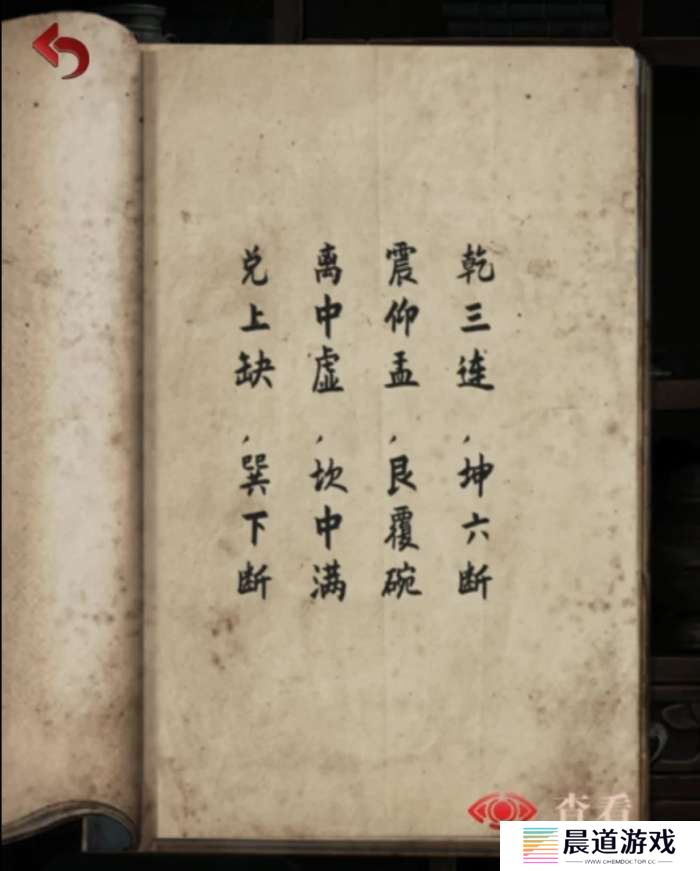 乾三连，坤六断
震仰盂，艮覆碗
离中虚，坎中满
兑上缺，巽下断
查看
晨道游戏
WWW.CHEMDOCTOR.CC